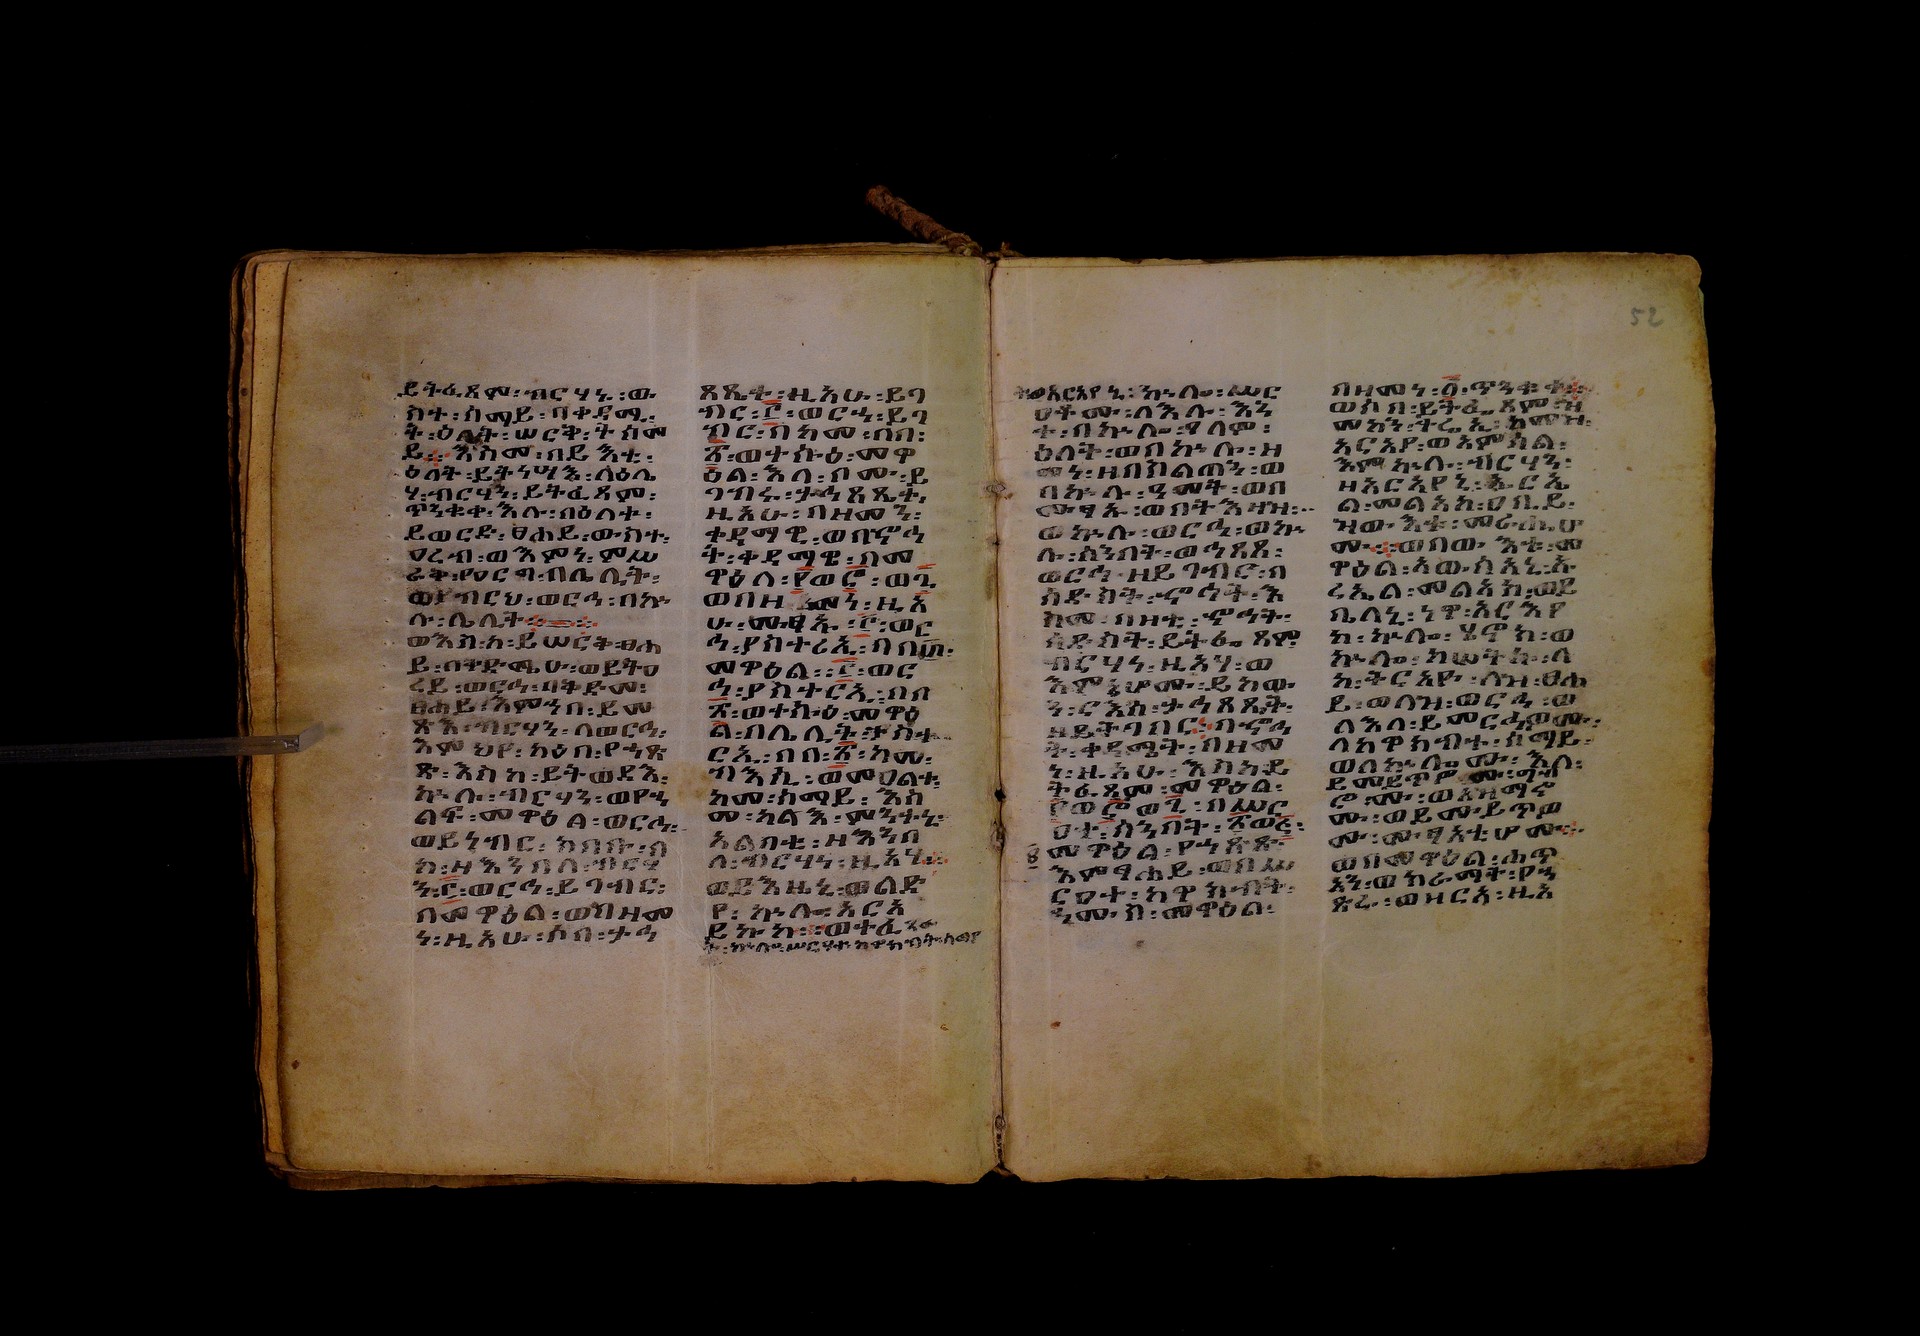 ይትፌጸም፡ ብርሃኑ፡ ው
ስተ፡ ሰማይ፡ በቀዳሚ፡
ት፡ ዕለት፡ ሠርቅ፡ ትሰመ
ይ። እስመ፡ በይእቲ፡
ዕለት፡ ይትነሣእ፡ ላዕሌ
ሃ፡ ብርሃን፡ ይትፌጸም፡
ጥንቁቀ፡ እሉ፡ በዕለተ፡
ይወርድ፡ ፀሐይ፡ ውስተ፡
ዐረብ፡ ወእምነ፡ ምሥ
ራቅ፡ የዐርግ፡ በሌሊት፡
ወያበርህ፡ ወርኅ፡ በኵ
ሉ፡ ሌሊት።
ወእስከ፡ ይሠርቅ፡ ፀሐ
ይ፡ በቅድሜሁ፡ ወይትዐ
ረይ፡ ወርኅ፡ በቅድመ፡
ፀሐይ፡ እምኀበ፡ ይመ
ጽእ፡ ብርሃን፡ ለወርኅ፡
እምህየ፡ ካዕበ፡ የኀጽ
ጽ፡ እስከ፡ ይትወዳእ፡
ኵሉ፡ ብርሃን፡ ወየኀ
ልፍ፡ መዋዕል፡ ወርኅ፡
ወይነብር፡ ከበቡ፡ በ
ከ፡ ዘእንበለ፡ ብርሃ
ን፡ ፫፡ ወርኅ፡ ይገብር፡
በመዋዕል፡ ወበዘመ
ኑ፡ ዚአሁ፡ ሶበ፡ ታኅ
ጸጼት፡ ዚአሁ፡ ይገ
ብር፡ ፫፡ ወርኅ፡ ይገ
ብር፡ በከመ፡ በበ፡
፴፡ ወተሱዕ፡ መዋ
ዕል፡ እለ፡ ቦሙ፡ ይ
ገብሩ፡ ታኅጸጼት፡
ዚአሁ፡ በዘመን፡
ቀዳማዊ፡ ወበኆኅ
ት፡ ቀዳማዊ፡ በመ
ዋዕለ፡ ፻ወ፸፡ ወ፯
ወበዘመነ፡ ዚአ
ሁ፡ ሙፃኡ፡ ፫፡ ወር
ኅ፡ ያስተሪኢ፡ በበ፴፡
መዋዕል፡ ፫፡ ወር
ኅ፡ ያስተርኢ፡ በበ
፳፡ ወተሱዕ፡ መዋዕ
ል፡ በሌሊት፡ ያስተ
ርኢ፡ በበ፡ ፳፡ ከመ፡
ብእሲ፡ ወመዐልተ፡
ከመ፡ ሰማይ፡ እስ
መ፡ ካልእ፡ ምንተኒ፡
አልቦቱ፡ ዘእንበ
ለ፡ ብርሃኑ፡ ዚአሁ።
ወይእዜኒ፡ ወልድ
የ፡ ኵሎ፡ አርአ
ይኩከ። ወተፈጸመ
ኵሉ፡ ሥርዐተ፡ ከዋክብት፡ ሰማይ
ወአርአየኒ፡ ኵሎ፡ ሥር
ዐቶሙ፡ ለእሉ፡ እን
ተ፡ በኵሎ፡ ዓለም፡
ዕለት፡ ወበኵሉ፡ ዘ
መን፡ ዘበሥልጣን፡ ወ
በኵሉ፡ ዓመት፡ ወበ
ሙፃኡ፡ ወበትእዛዝ፡
ወኵሉ፡ ወርኅ፡ ወኵ
ሉ፡ ሰንበት፡ ወኅጸጸ፡
ወርኅ፡ ዘይገብር፡ በ
ሳድስት፡ ኆኅት፡ እ
ስመ፡ በዛቲ፡ ኆኅት፡
ሳድስት፡ ይትፌጸም፡
ብርሃኑ፡ ዚአሃ፡ ወ
እምኔሆሙ፡ ይከው
ን፡ ርእሰ፡ ታኅጸጼት፡
ዘይትገበር። በኆኅ
ት፡ ቀዳሚት፡ በዘመ
ኑ፡ ዚአሁ፡ እስከ፡ ይ
ትፌጸም፡ መዋዕል፡
፻ወ፸ወ፯፡ በሥር
ዐተ፡ ሰንበት፡ ፳ወ፭፡
መዋዕል፡ የኀጽጽ፡
እምፀሐይ፡ ወበሥ
ርዐተ፡ ከዋክብት፡
ኀሙስ፡ መዋዕል፡
በዘመነ፡ ፩፡ ጥንቁቀ።
ወሶበ፡ ይትፌጸም፡ ዝ
መካን፡ ትሬኢ፡ ከመዝ፡
አርአያ፡ ወአምሳል፡
እምኵሉ፡ ብርሃን፡
ዘአርአየኒ፡ ኡርኤ
ል፡ መልአክ፡ ዐቢይ፡
ዝውእቱ፡ መራሒሆ
ሙ። ወበውእቱ፡ መ
ዋዕል፡ አውሥአኒ፡ ኡ
ርኤል፡ መልአክ፡ ወይ
ቤለኒ፡ ነዋ፡ አርአይ
ኩከ፡ ኵሎ፡ ሄኖክ፡ ወ
ኵሎ፡ ከሠትኩ፡ ለ
ከ፡ ትርአይ፡ ለዝ፡ ፀሐ
ይ፡ ወለዝ፡ ወርኅ፡ ወ
ለእለ፡ ይመርሕዎሙ፡
ለከዋክብተ፡ ሰማይ፡
ወለኵሎሙ፡ እለ፡
ይመይጥዎሙ፡ ግብ
ሮሙ፡ ወአዝማኖ
ሙ፡ ወይመይጥዎ
ሙ፡ ሙፃአቲሆሙ።
ወበመዋዕል፡ ኃጥ
አን፡ ወክራማት፡ የኀ
ጽራ፡ ወዘርአ፡ ዚአ
52